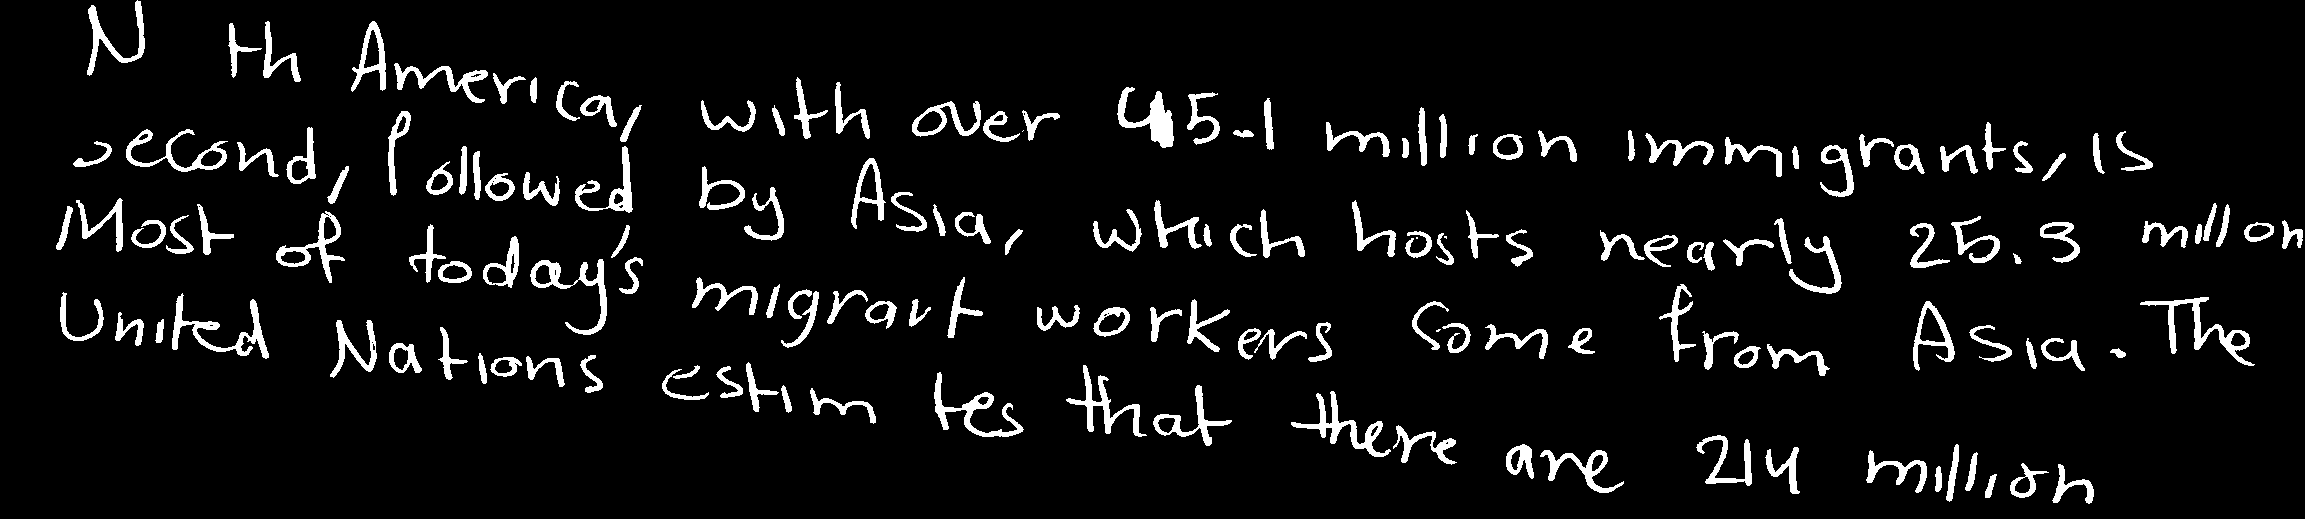 N th America, with over 45.1 million immigrants, is
second, followed by Asia, which hosts nearly 25.3 millon
Most of today's migrant workers come from Asia. The
United Nations estim tes that there are 214 million